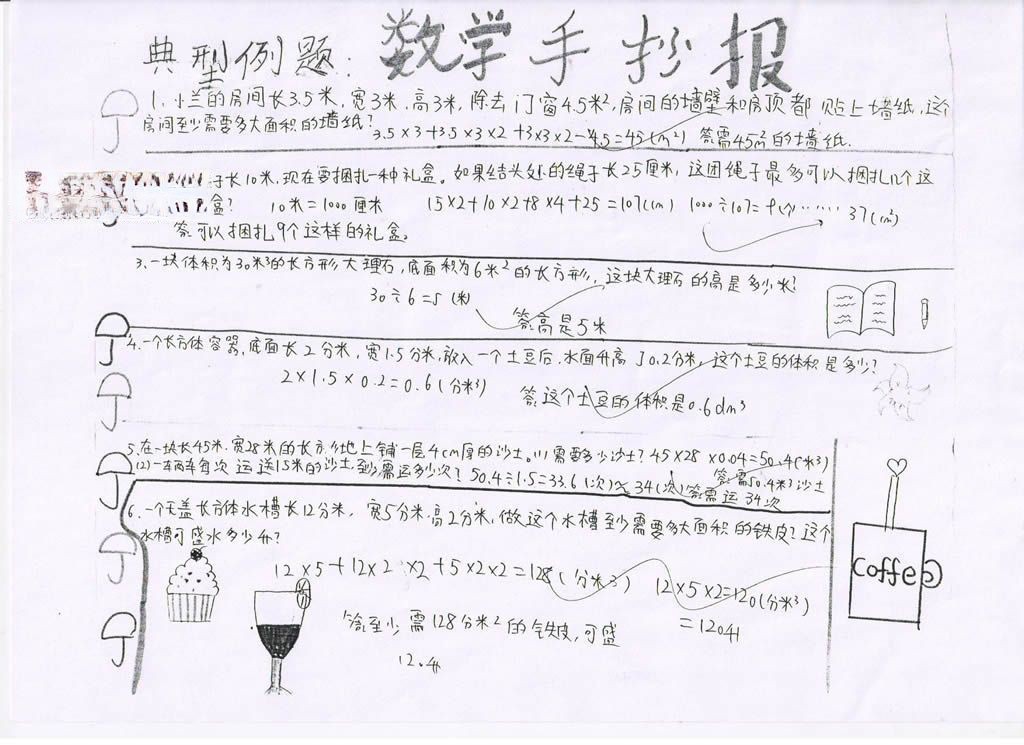 典型例题: 数学手抄报
1. 小兰的房间长3.5米,宽3米.高3米,除去门窗4.5米²,房间的墙壁和房顶都贴上墙纸,这个
房间至少需要多大面积的墙纸?
3.5×3+3.5×3×2+3×3×2-4.5=45(m²) 答需45m²的墙纸.
子长10米,现在要捆扎一种礼盒。如果结头处的绳子长25厘米,这团绳子最多可以捆扎几个这
盒? 10米=1000厘米 15×2+10×2+8×4+25=107(cm) 1000÷107=9(个)……37(cm²)
答可以捆扎9个这样的礼盒。
3.一块体积为30米³的长方形大理石,底面积为6米²的长方形,这块大理石的高是多少米?
30÷6=5(米)
答高是5米
4.一个长方体容器,底面长2分米,宽1.5分米,放入一个土豆后.水面升高了0.2分米,这个土豆的体积是多少?
2×1.5×0.2=0.6(分米³) 答这个土豆的体积是0.6dm³
5.在一块长45米.宽28米的长方形地上铺一层4cm厚的沙土。(1)需要多少沙土? 45×28×0.04=50.4(米³)
答需50.4米³沙土
(2)一车两车每次运送15米的沙土,至少需运多少次? 50.4÷1.5=33.6(次)≈34(次)答需运34次
6.一个无盖长方体水槽长12分米,宽5分米.高2分米,做这个水槽至少需要多大面积的铁皮?这个
水槽可盛水多少升?
12×5+12×2×2+5×2×2=128(分米³) 12×5×2=120(分米³)
=120升
答至少需128分米²的铁皮,可盛
12.升
Coffee